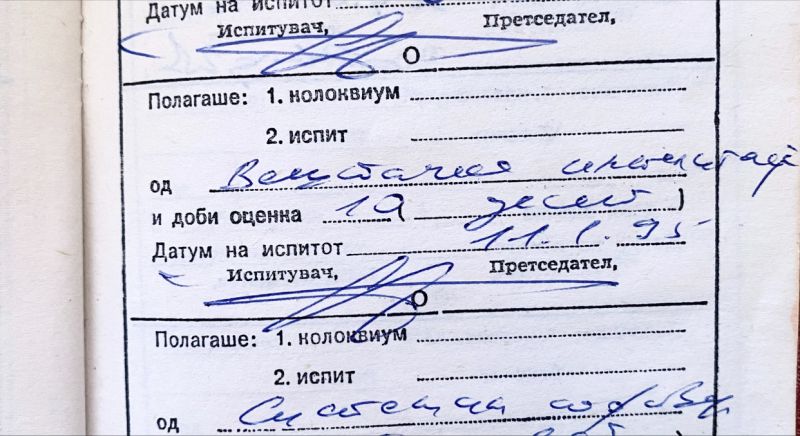 Датум на испитот
Испитувач, Претседател,
О
Полагаше: 1. колоквиум
2. испит
од Вештачка интелигенц
и доби оценка 10 ( десет )
Датум на испитот 11.1.95
Испитувач, Претседател,
О
Полагаше: 1. колоквиум
2. испит
од Системски софтвер